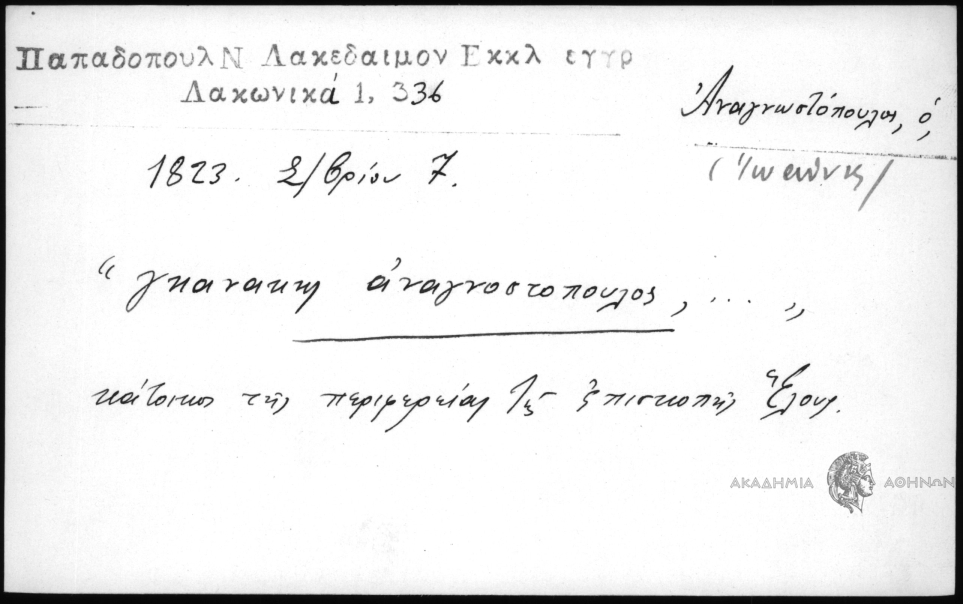 Παπαδοπουλ Ν Λακεδαιμον Εκκλ εγγρ
Λακωνικά 1, 336
Ἀναγνωστόπουλος, ὁ,
1823. Σ/βρίου 7.
“ γκανακης ἀναγνοστοπουλος, ... „
κάτοικος τῆς περιφερείας τῆς ἐπισκοπῆς Ἕλους.
ΑΚΑΔΗΜΙΑ ΑΘΗΝΩΝ